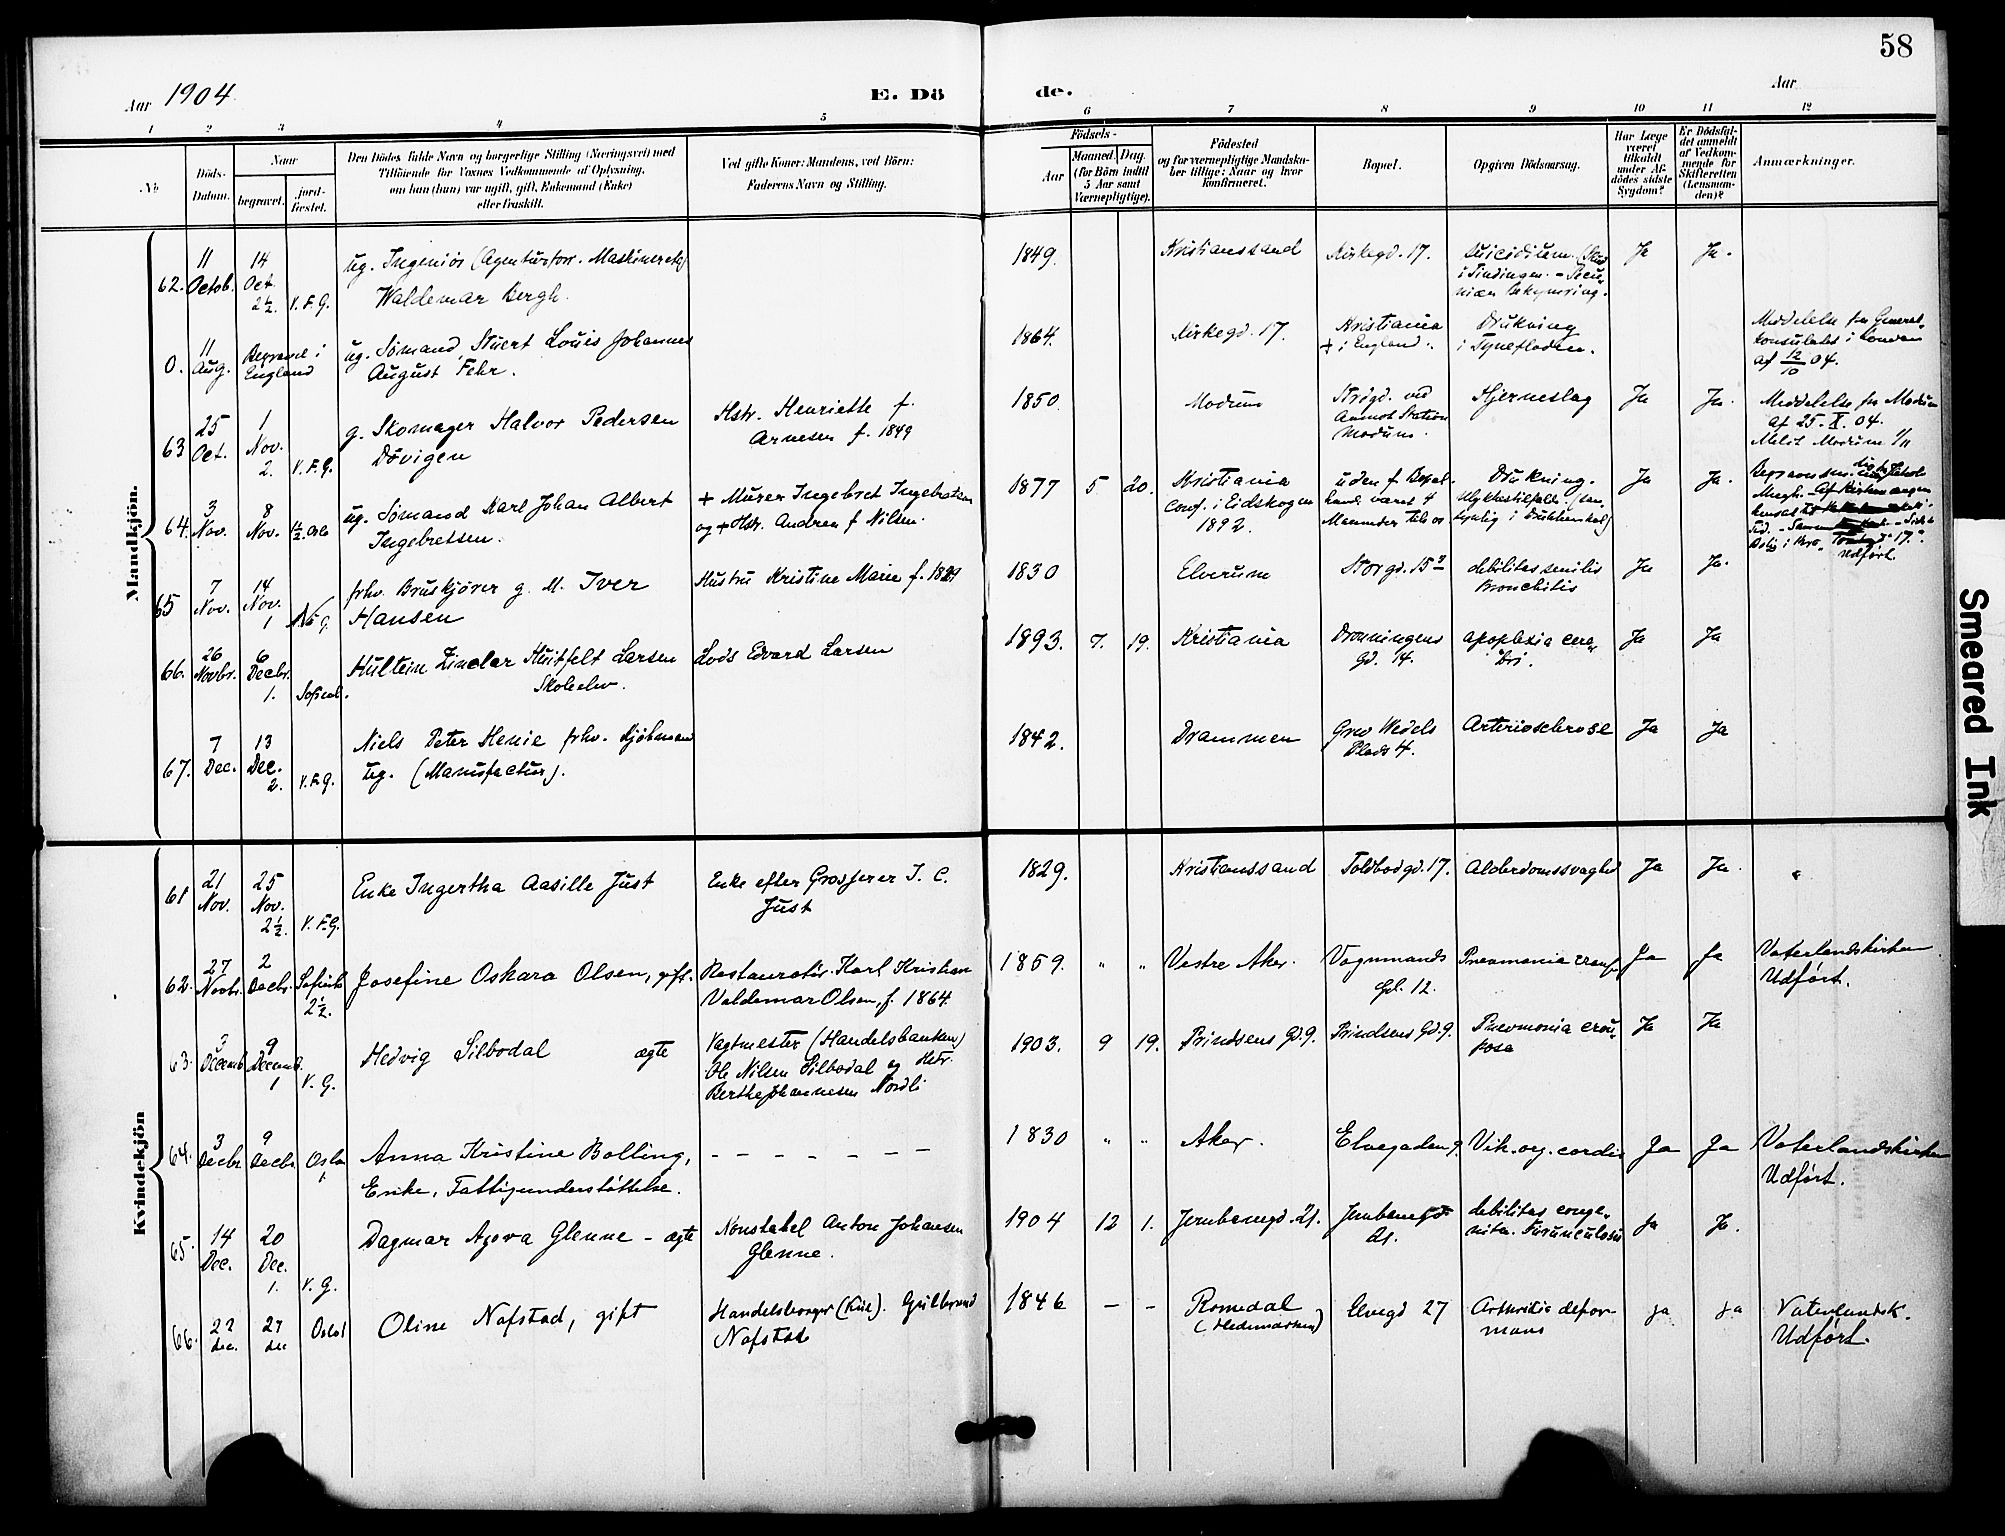 58
Aar 1904
E. Dö
de.
Aar
1 2 3 4 5 6 7 8 9 10 11 12
No
Döds-
Datum.
Naar
begravet.
jord-
fæstet.
Den Dödes fulde Navn og borgerlige Stilling (Næringsvei) med
Tilföiende for Voxnes Vedkommende af Oplysning,
om han (hun) var ugift, gift, Enkemand (Enke)
eller fraskilt.
Ved gifte Koner: Mandens, ved Börn:
Faderens Navn og Stilling.
Födsels-
Aar
Maaned. Dag.
(for Börn indtil
5 Aar samt
Værnepligtige).
Födested
og for værnepligtige Mandsku-
ber tillige: Naar og hvor
konfirmeret.
Bopæl.
Opgiven Dödsaarsag.
Har Læge
været
tilkaldt
under Af-
dödes sidste
Sygdom?
Er Dödsfal-
det anmeldt
af Vedkom-
mende for
Skifteretten
(Lensman-
den)?
Anmærkninger.
Mandkjön.
62. 11 Octob. 14 Oct. 2½. V.F.G.
ug. Ingeniör (Agenturforr. Maskiner etc)
Waldemar Bergh.
1849. Kristianssand Kirkegd. 17. Suicidium. Ja Ja.
0. 11 Aug. Begravet i England
ug. Sømand Stuert Louis Johannes
August Fehr.
1864. Kirkegd. 17. Kristiania
+ i England.
Drukning
i Tynefloden.
Meddelelse fra General-
konsulatet i London
af 12/10 04.
63 25 Oct. 1 Nov. 2. V.F.G.
g. Skomager Halvor Pedersen
Dövigen
Hstr. Henriette f.
Arnesen f. 1849
1850. Modum
Modum.
Hjerneslag Ja Ja.
Meddelelse fra Modum
af 25-X-04.
64. 3 Nov. 8 Nov. ½ Oslo
ug. Sømand Karl Johan Albert
Ingebretsen.
+ Murer Ingebret Ingebretsen
og + Hstr. Andrea f Nilsen.
1877 5 20. Kristiania
conf. i Eidskogen
1892.
uden f Bopæl
havd været 4
Maaneder tils os
Drukning.
Ulykkestilfælde.
Ja Ja.
Udført.
65 7 Nov. 14 Nov. 1
frhv. Bruskjører g. M. Iver
Hansen
Hustru Kristine Marie f. 1829
1830 Elverum Storgd. 15 debilitas senilis
Bronchitis
Ja Ja.
66. 26 Novbr. 6 Decbr. 1. Sofienb.
Hultein Zinclar Huitfelt Larsen
Skoleelev.
Lods Edvard Larsen
1893. 7. 19. Kristiania Dronningens
Gd. 14.
apoplexia cere-
bri.
Ja Ja
67. 7 Dec. 13 Dec. 2. V.F.G.
Niels Peter Henie frhv. Kjöbmand
ug. (Manufactur).
1842. Drammen Grev Wedels
Plads 4.
Arteriosclerose Ja Ja
Kvindekjön
61 21 Nov. 25 Nov. 2½. V.F.G.
Enke Ingertha Aasille Just
Enke efter Grosserer I. C.
Just
1829. Kristianssand Toldbodgd. 17. Alderdomssvaghed Ja Ja.
62. 27 Novbr. 2 Decbr. Sofienb. 2½.
Josefine Oskara Olsen, gift.
Restauratör Karl Kristian
Valdemar Olsen, f. 1864.
1859. " " Vestre Aker. Vognmands
Gd. 12.
Pneumonia croup. Ja Ja
Vaterlandskirken
Udført.
63. 3 Decemb. 9 Decemb. 1 V.G.
Hedvig Silbodal ægte
Vagtmester (Handelsbanken)
Ole Nilsen Silbodal og Hstr.
Berthe Johannesen Nordli
1903. 9 19. Prindsens Gd. 9. Prindsens Gd. 9. Pneumonia crou-
posa
Ja Ja
64. 3 Decbr 9 Decbr. Oslo
Anna Kristine Bolling,
Enke, Fattigunderstöttelse.
– – – – – – –
1830 " " Aker. Elvegaden 9. Vit. org. cordis Ja Ja
Vaterlandskirken
Udført.
65. 14 Dec. 20 Dec. 1. V.G.
Dagmar Agora Glenne – ægte
Konstabel Anton Johansen
Glenne.
1904 12 1. Jernbanegd. 21. Jernbanegd.
21.
debilitas conge-
nita. Furunculosis
Ja Ja.
66. 22 dec. 27 dec Oslo
Oline Nafstad, gift
Handelsborger (Kiik). Gulbrand
Nafstad
1846 – – Romedal
(Hedemarken)
Elvegd 27 Arthritis defor-
mans
ja ja
Vaterlandsk.
Udført.
Smeared Ink